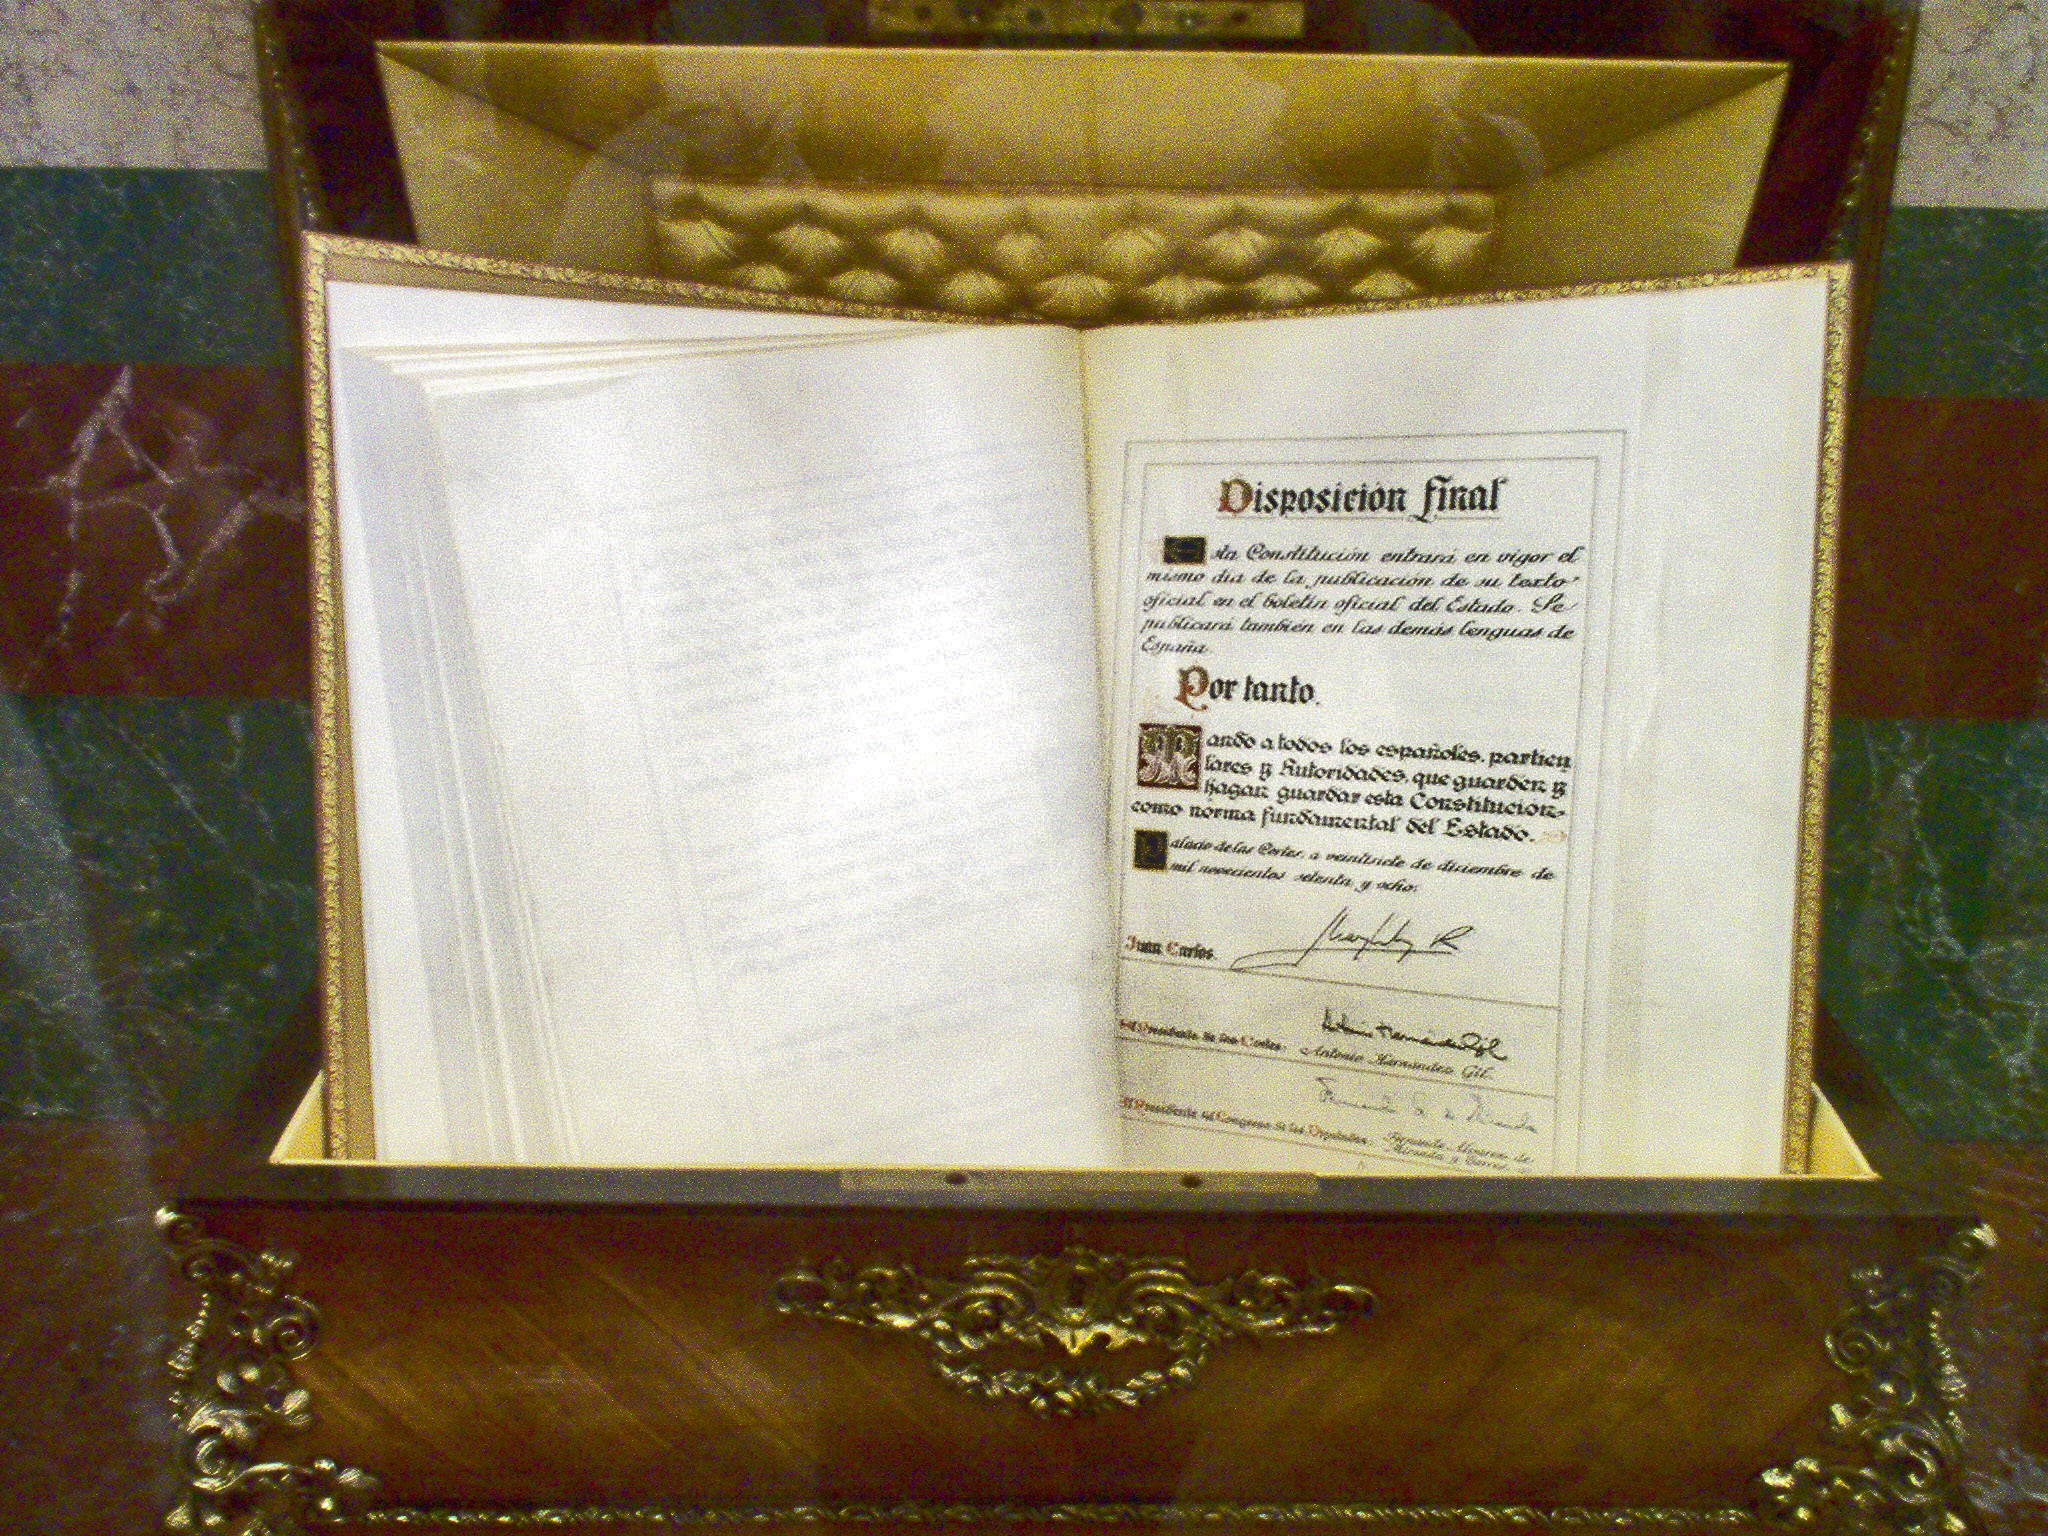 Disposición final
Esta Constitución entrará en vigor el
mismo día de la publicación de su texto
oficial en el boletín oficial del Estado. Se
publicará también en las demás lenguas de
España.
Por tanto.
Mando a todos los españoles, particu
lares y Autoridades, que guarden y
hagan guardar esta Constitución
como norma fundamental del Estado.
Palacio de las Cortes, a veintisiete de diciembre de
mil novecientos setenta y ocho.
Juan Carlos
El Presidente de las Cortes. Antonio Hernández Gil.
El Presidente del Congreso de los Diputados. Fernando Álvarez de
Miranda y Torres